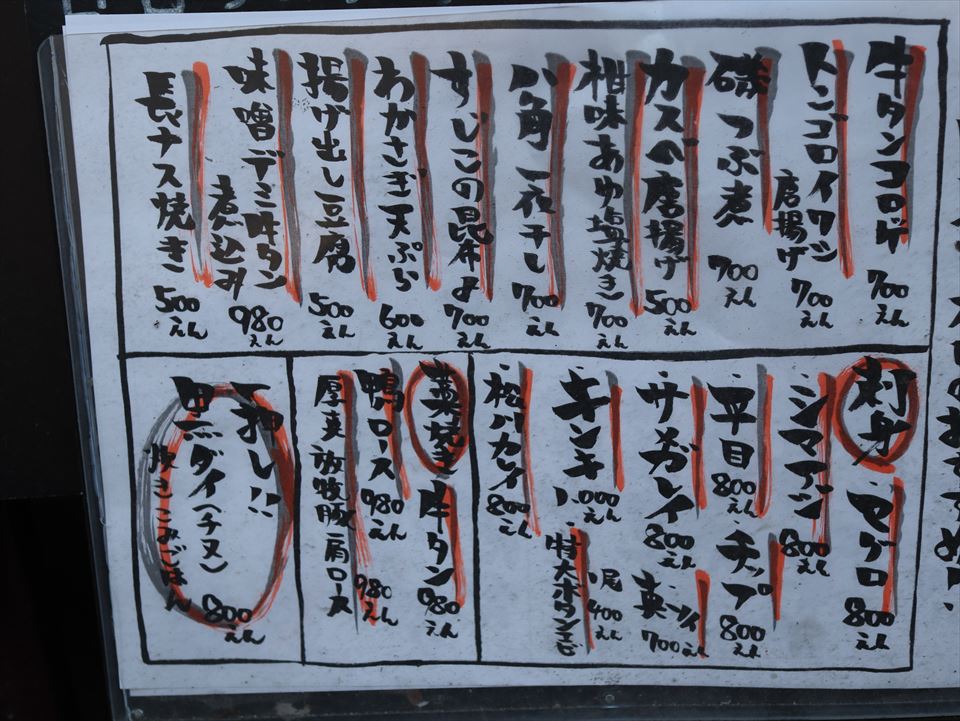 牛タンコロッケ 700えん
トンゴロイワシ唐揚げ 700えん
磯つぶ煮 700えん
カスベ唐揚げ 500えん
柑味あゆ塩焼き 700えん
八角一夜干し 700えん
すじこの昆布〆 700えん
わかさぎ天ぷら 600えん
揚げ出し豆腐 500えん
味噌デミ牛タン煮込み 980えん
長ナス焼き 500えん
刺身
・セグロ 800えん
・シマアジ 800えん
・平目 800えん
・チップ 800えん
・サメガレイ 800えん
・真ツブ 700えん
・キンキ 1.000えん
特大ボタンエビ 1尾 400えん
・松川カレイ 800えん
藁焼き
牛タン 980えん
鴨ロース 980えん
厚真放牧豚肩ロース 980えん
一押し!!
黒ダイ(チヌ)
炊きこみごはん 800えん